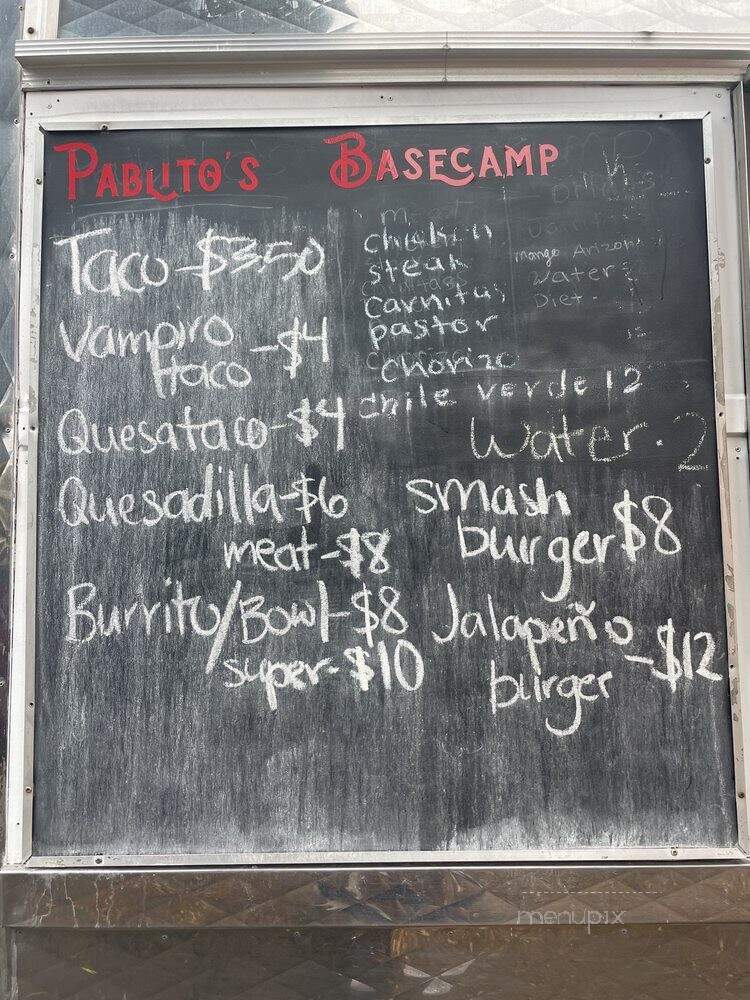 PABLITO'S BASECAMP
Taco-$3.50
Vampiro taco -$4
Quesataco-$4
Quesadilla-$6
meat-$8
Burrito/Bowl-$8
super-$10
chicken
steak
carnitas
pastor
chorizo
chile verde 12
mango Arizona
Water
Diet
Water. 2
smash
burger $8
Jalapeño
burger -$12
menupix